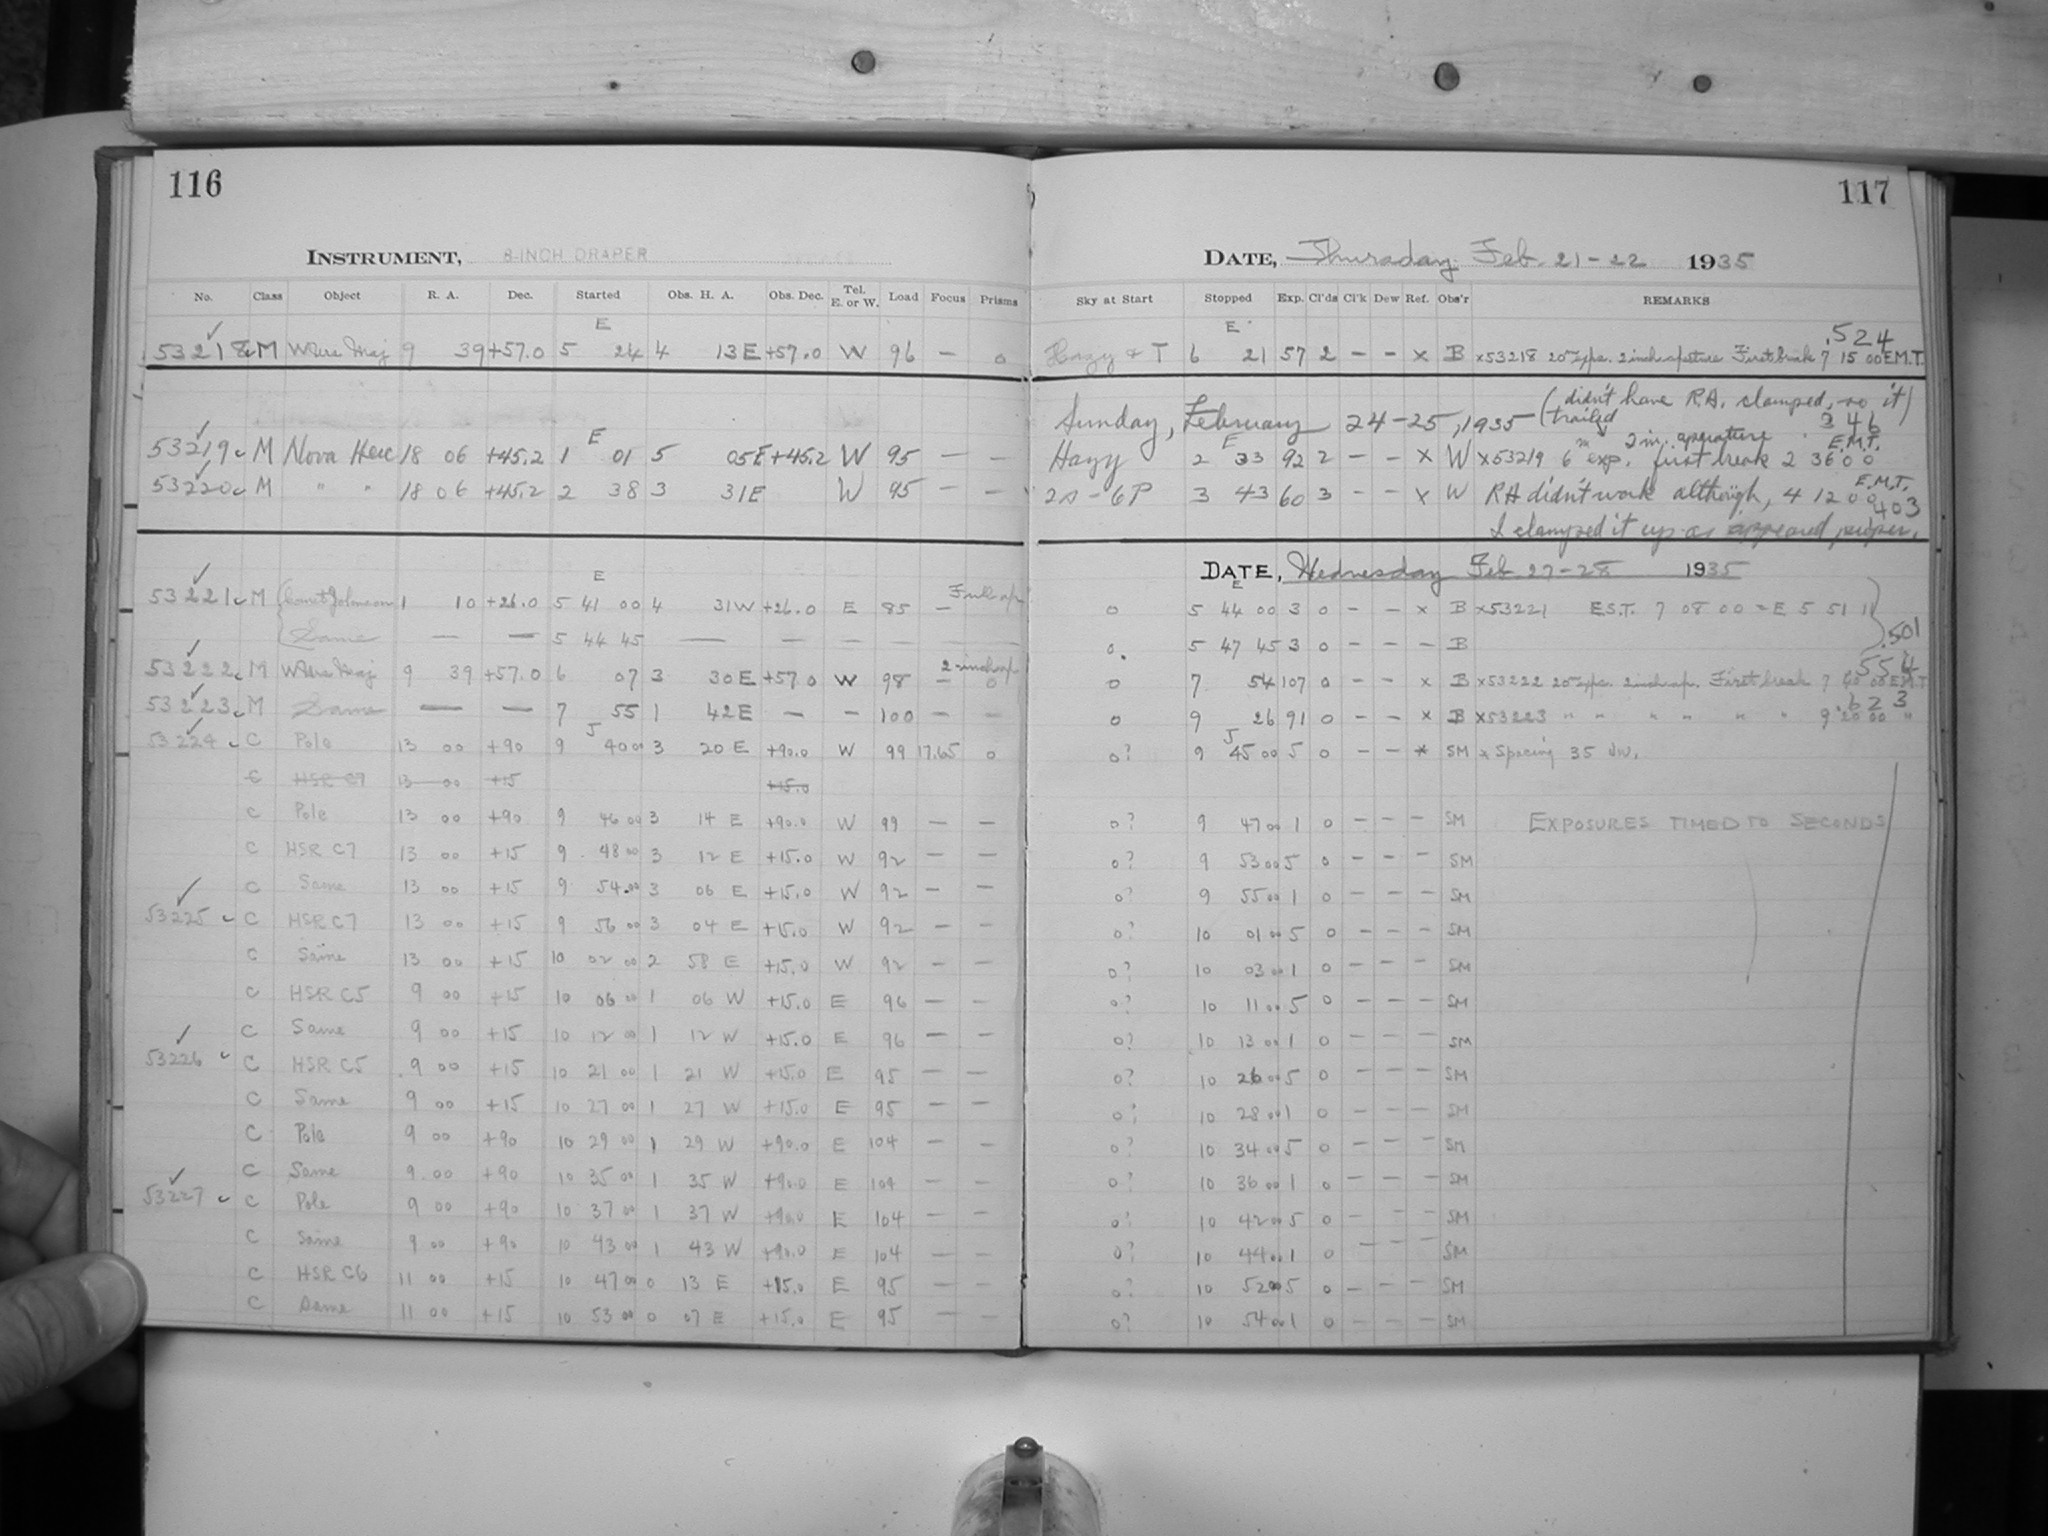 116
INSTRUMENT, 8-INCH DRAPER
No. Class Object R. A. Dec. Started Obs. H. A. Obs. Dec. Tel. E. or W. Load Focus Prisms
E
53218 M W Urs Maj 9 39 +57.0 5 24 4 13 E +57.0 W 96 — 0
E
53219 M Nova Herc 18 06 +45.2 1 01 5 05 E +45.2 W 95 — —
53220 M " " 18 06 +45.2 2 38 3 31 E W 95 — —
E
Full ap
53221 M Comet Johnson 1 10 +26.0 5 41 00 4 31 W +26.0 E 85 —
Same — — 5 44 45 — — — — — —
2-inch ap
53222 M W Urs Maj 9 39 +57.0 6 07 3 30 E +57.0 W 98 — 0
53223 M Same — — 7 55 1 42 E — — 100 — —
J
53224 C Pole 13 00 +90 9 40 00 3 20 E +90.0 W 99 17.65 0
C HSR C7 13 00 +15 +15.0
C Pole 13 00 +90 9 46 00 3 14 E +90.0 W 99 — —
C HSR C7 13 00 +15 9 48 00 3 12 E +15.0 W 92 — —
C Same 13 00 +15 9 54 00 3 06 E +15.0 W 92 — —
53225 C HSR C7 13 00 +15 9 56 00 3 04 E +15.0 W 92 — —
C Same 13 00 +15 10 02 00 2 58 E +15.0 W 92 — —
C HSR C5 9 00 +15 10 06 00 1 06 W +15.0 E 96 — —
C Same 9 00 +15 10 12 00 1 12 W +15.0 E 96 — —
53226 C HSR C5 9 00 +15 10 21 00 1 21 W +15.0 E 95 — —
C Same 9 00 +15 10 27 00 1 27 W +15.0 E 95 — —
C Pole 9 00 +90 10 29 00 1 29 W +90.0 E 104 — —
C Same 9 00 +90 10 35 00 1 35 W +90.0 E 104 — —
53227 C Pole 9 00 +90 10 37 00 1 37 W +90.0 E 104 — —
C Same 9 00 +90 10 43 00 1 43 W +90.0 E 104 — —
C HSR C6 11 00 +15 10 47 00 0 13 E +15.0 E 95 — —
C Same 11 00 +15 10 53 00 0 07 E +15.0 E 95 — —
117
DATE, Thursday Feb. 21-22 1935
Sky at Start Stopped Exp. Cl'ds Cl'k Dew Ref. Obs'r REMARKS
E .524
Hazy & T 6 21 57 2 — — x B x53218 20 exps. 2 inch aperture First break 7 15 00 E.M.T.
Sunday, February 24-25, 1935 (didn't have RA. clamped, so it trailed)
.346
E 2 in. aperature E.M.T.
Hazy 2 33 92 2 — — x W x53219 6m exp. first break 2 36 00
2s-6P 3 43 60 3 — — x W RA didn't work although, 4 12 00 E.M.T.
.403
I clamped it up as appeared proper.
DATE, Wednesday Feb 27-28 1935
E
0 5 44 00 3 0 — — x B x53221 E.S.T. 7 08 00 = E 5 51 11
0. 5 47 45 3 0 — — — B .501
.554
0 7 54 107 0 — — x B x53222 20m exps. 2 inch ap. First break 7 40 00 E.M.T
.623
0 9 26 91 0 — — x B x53223 " " " " " " 9 20 00 "
J
0? 9 45 00 5 0 — — * SM * Spacing 35 div.
0? 9 47 00 1 0 — — — SM EXPOSURES TIMED TO SECONDS
0? 9 53 00 5 0 — — — SM
0? 9 55 00 1 0 — — — SM
0? 10 01 00 5 0 — — — SM
0? 10 03 00 1 0 — — — SM
0? 10 11 00 5 0 — — — SM
0? 10 13 00 1 0 — — — SM
0? 10 26 00 5 0 — — — SM
0? 10 28 00 1 0 — — — SM
0? 10 34 00 5 0 — — — SM
0? 10 36 00 1 0 — — — SM
0? 10 42 00 5 0 — — — SM
0? 10 44 00 1 0 — — — SM
0? 10 52 00 5 0 — — — SM
0? 10 54 00 1 0 — — — SM